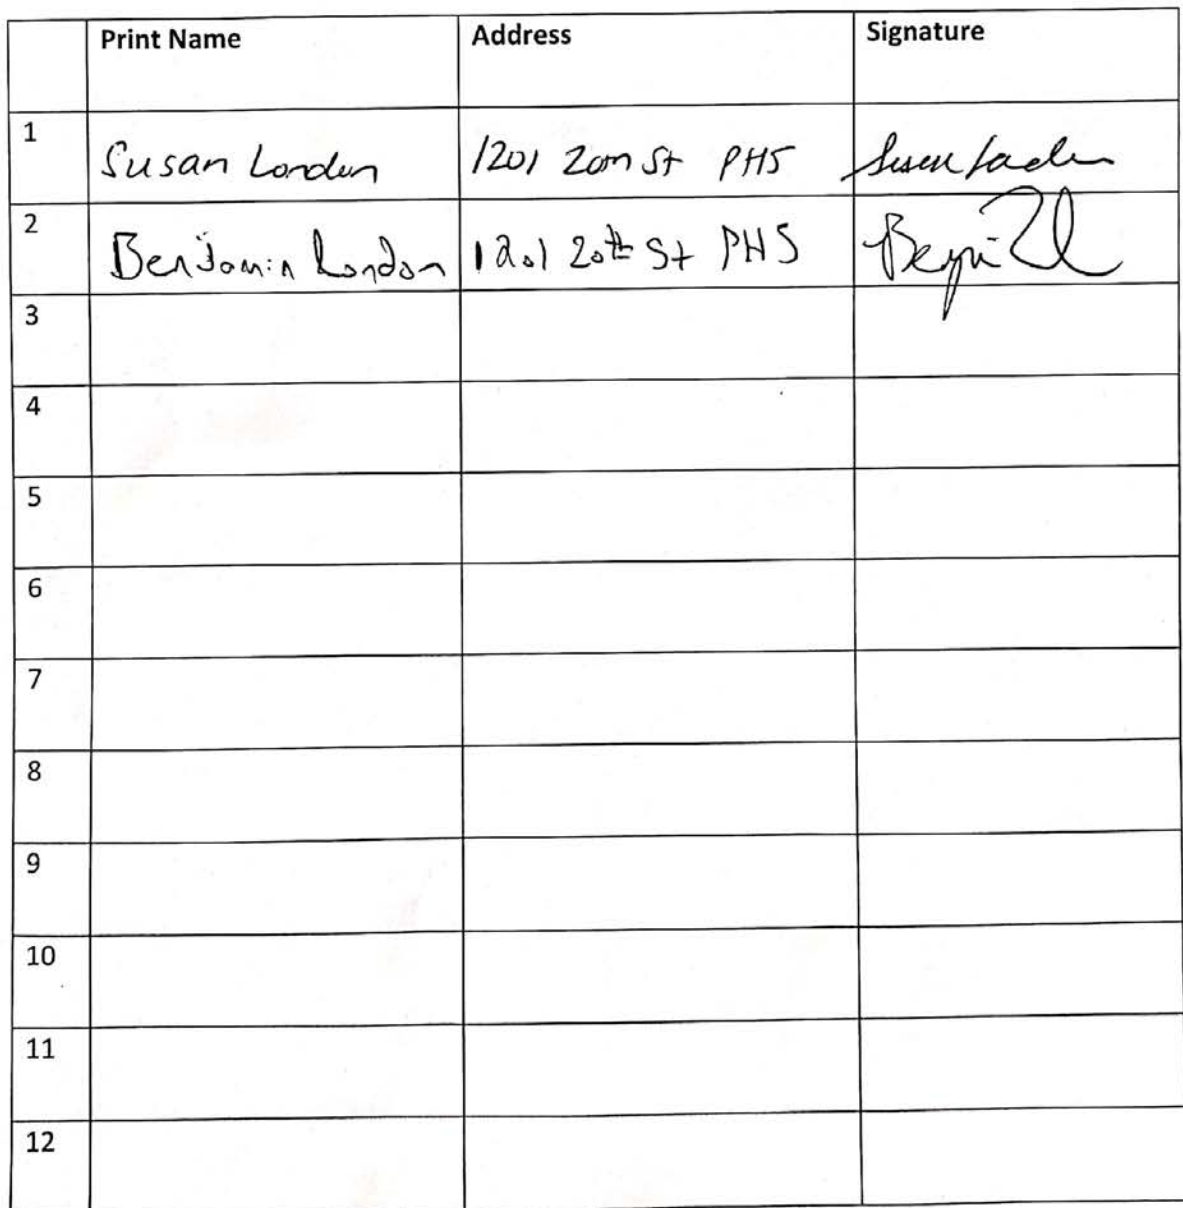 Print Name Address Signature
1 Susan London 1201 20th St PH5
2 Benjamin London 1201 20th St PH5
3
4
5
6
7
8
9
10
11
12